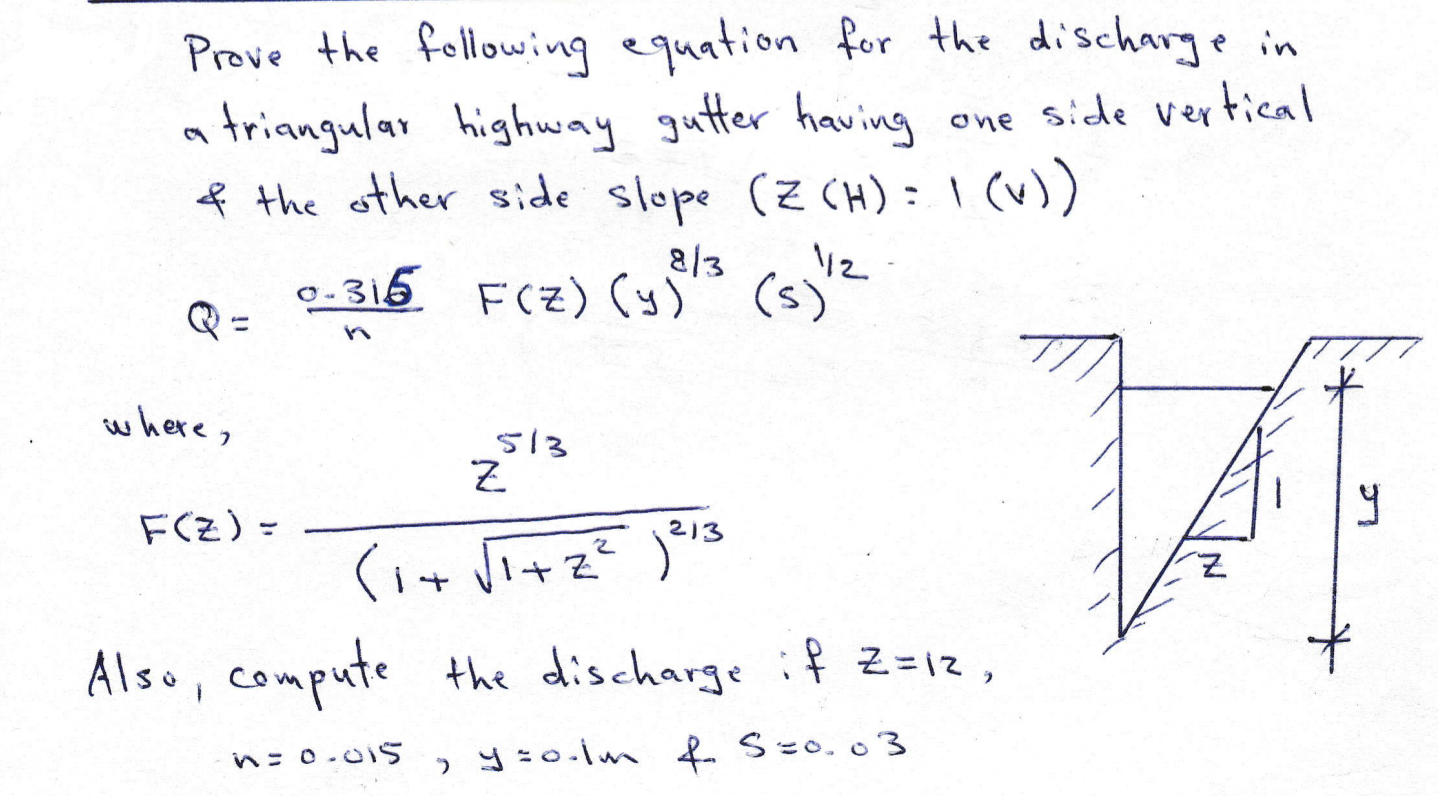 Prove the following equation for the discharge in
a triangular highway gutter having one side vertical
& the other side slope (Z (H) : 1 (V))
Q = 0.315/n F(Z) (y)^8/3 (S)^1/2
where,
F(Z) = Z^5/3 / (1 + √1+Z²)^2/3
1
y
Z
Also, compute the discharge if Z=12,
n=0.015, y=0.1m & S=0.03